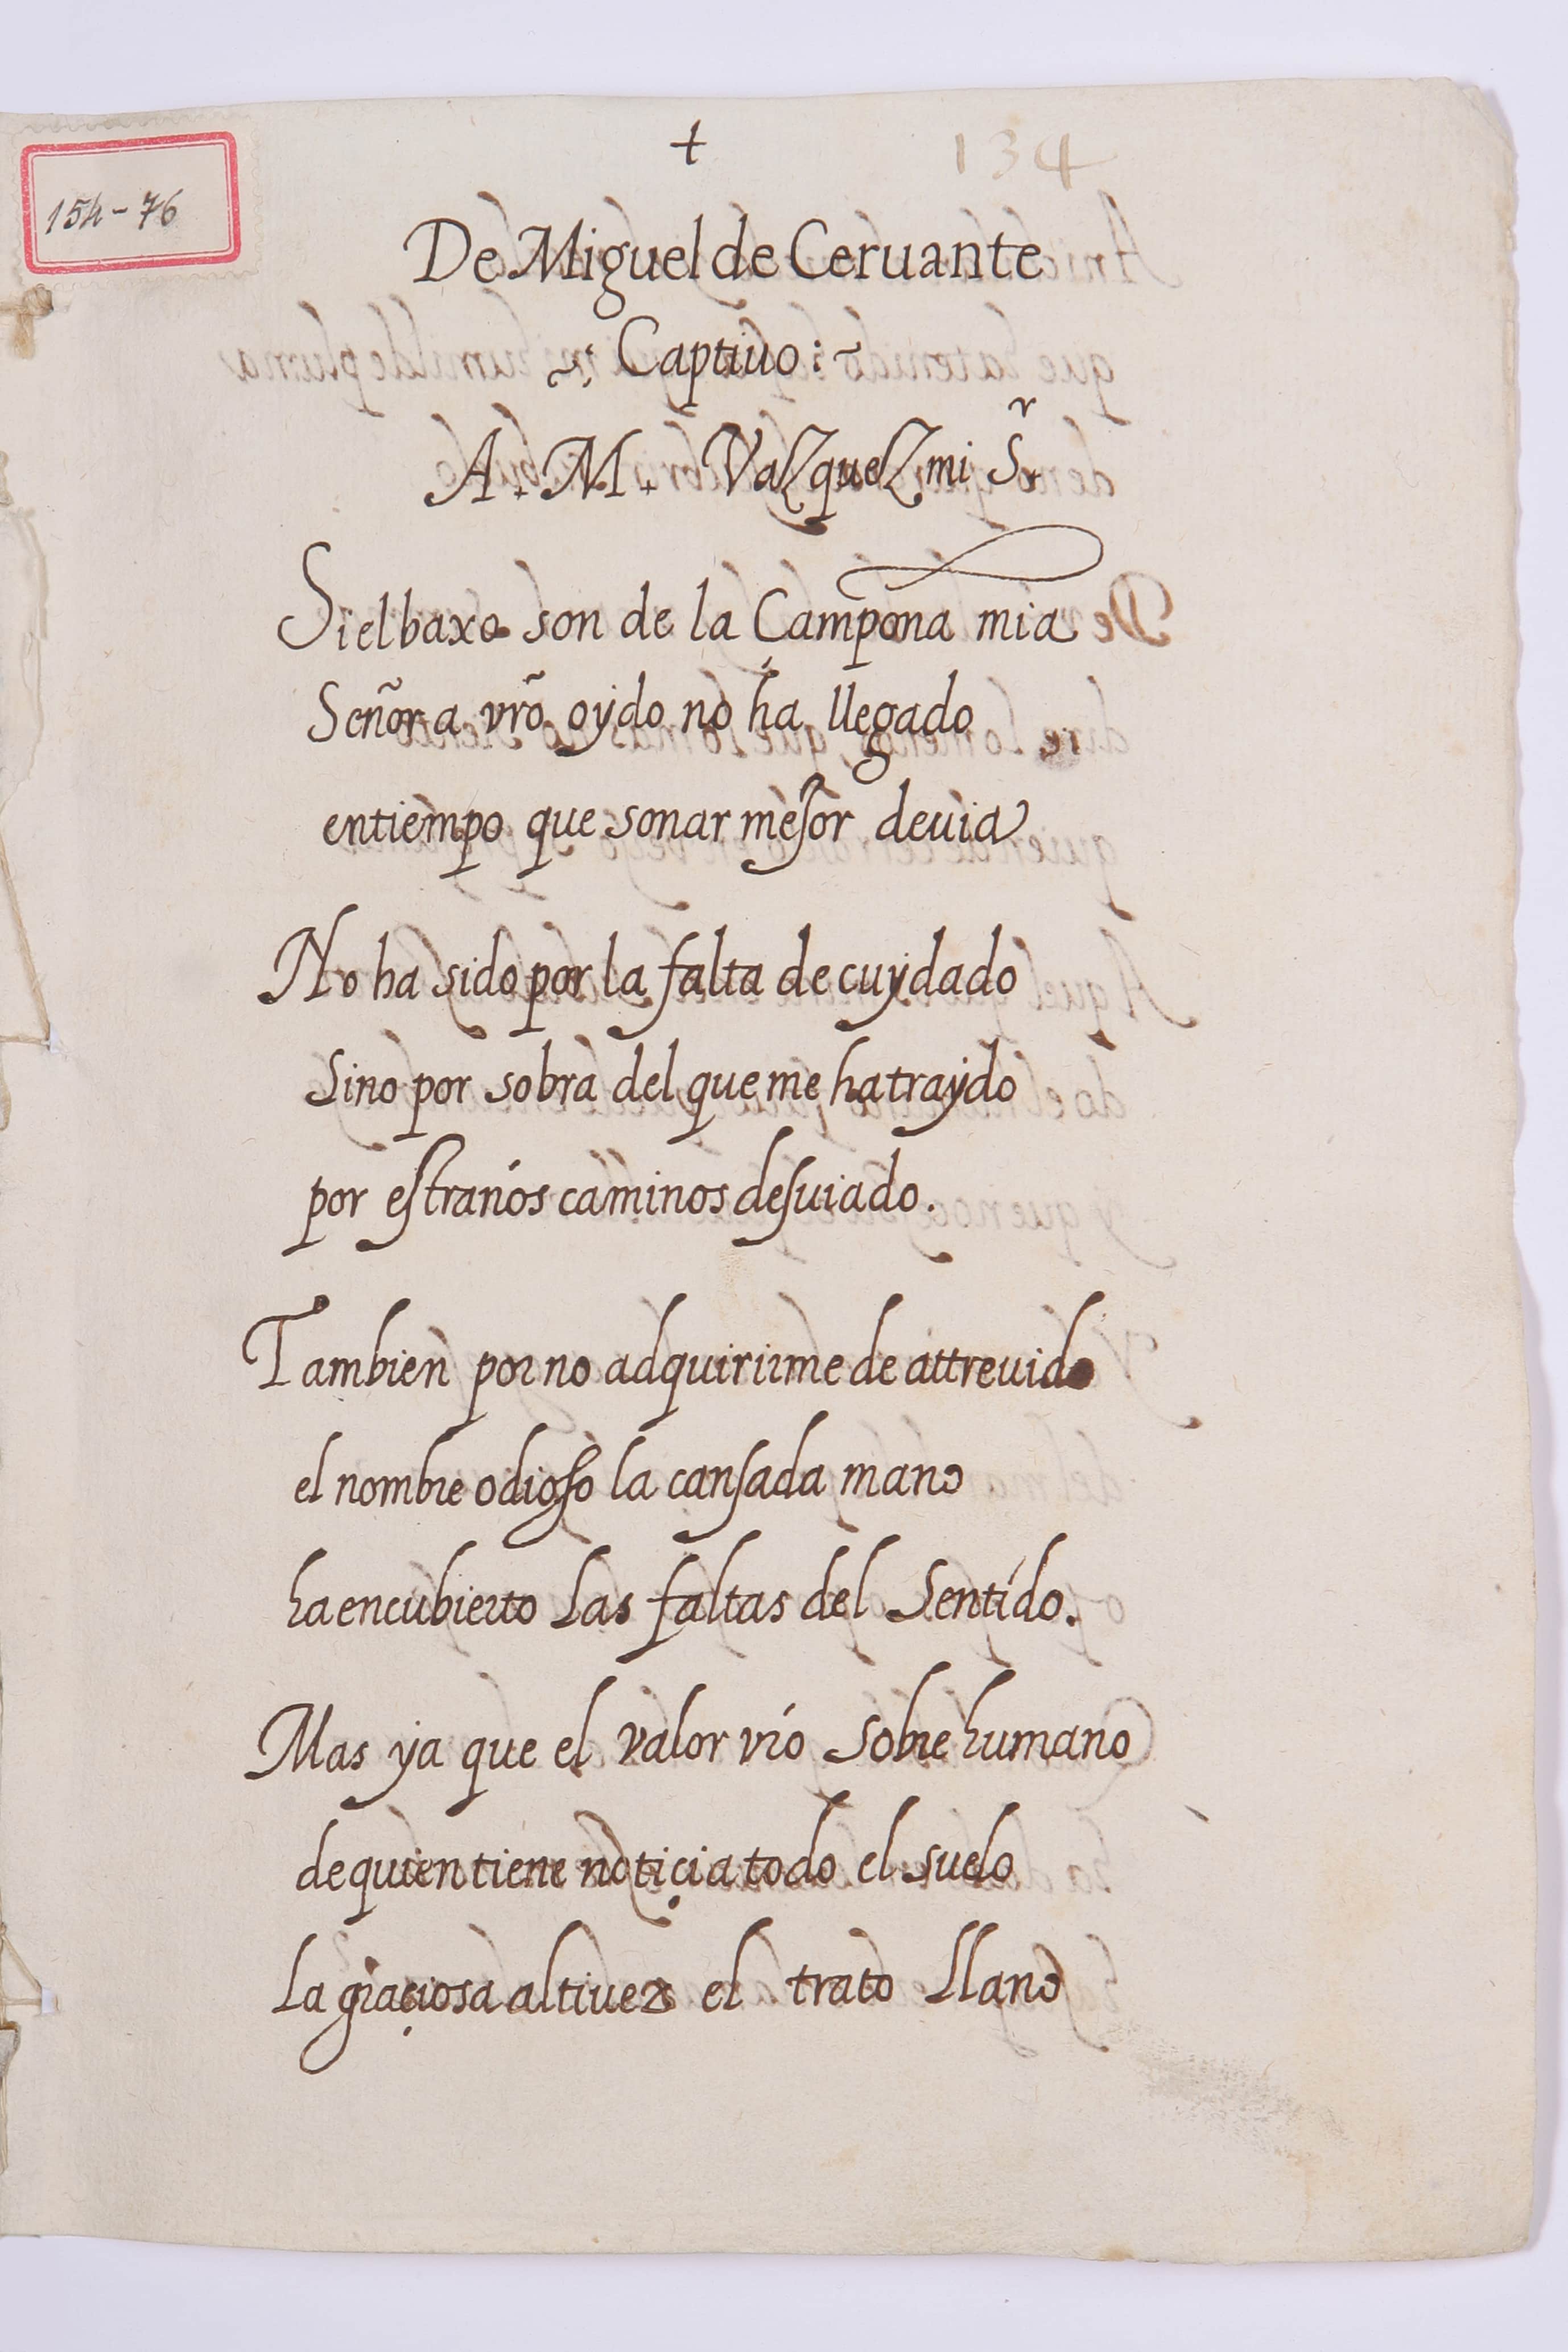 +
134
154-76
De Miguel de Ceruante
Captiuo:~
A. M. Vazquez mi Sr
Si el baxo son de la Çampona mia
Señor a vrõ oydo no ha llegado
en tiempo que sonar mejor deuia
No ha sido por la falta de cuydado
Sino por sobra del que me ha traydo
por estraños caminos desuiado.
Tambien por no adquirirme de attreuido
el nombre odioso la cansada mano
ha encubierto las faltas del Sentido.
Mas ya que el valor vrõ sobre humano
de quien tiene notiçia todo el suelo
La graçiosa altiuez el trato Llano